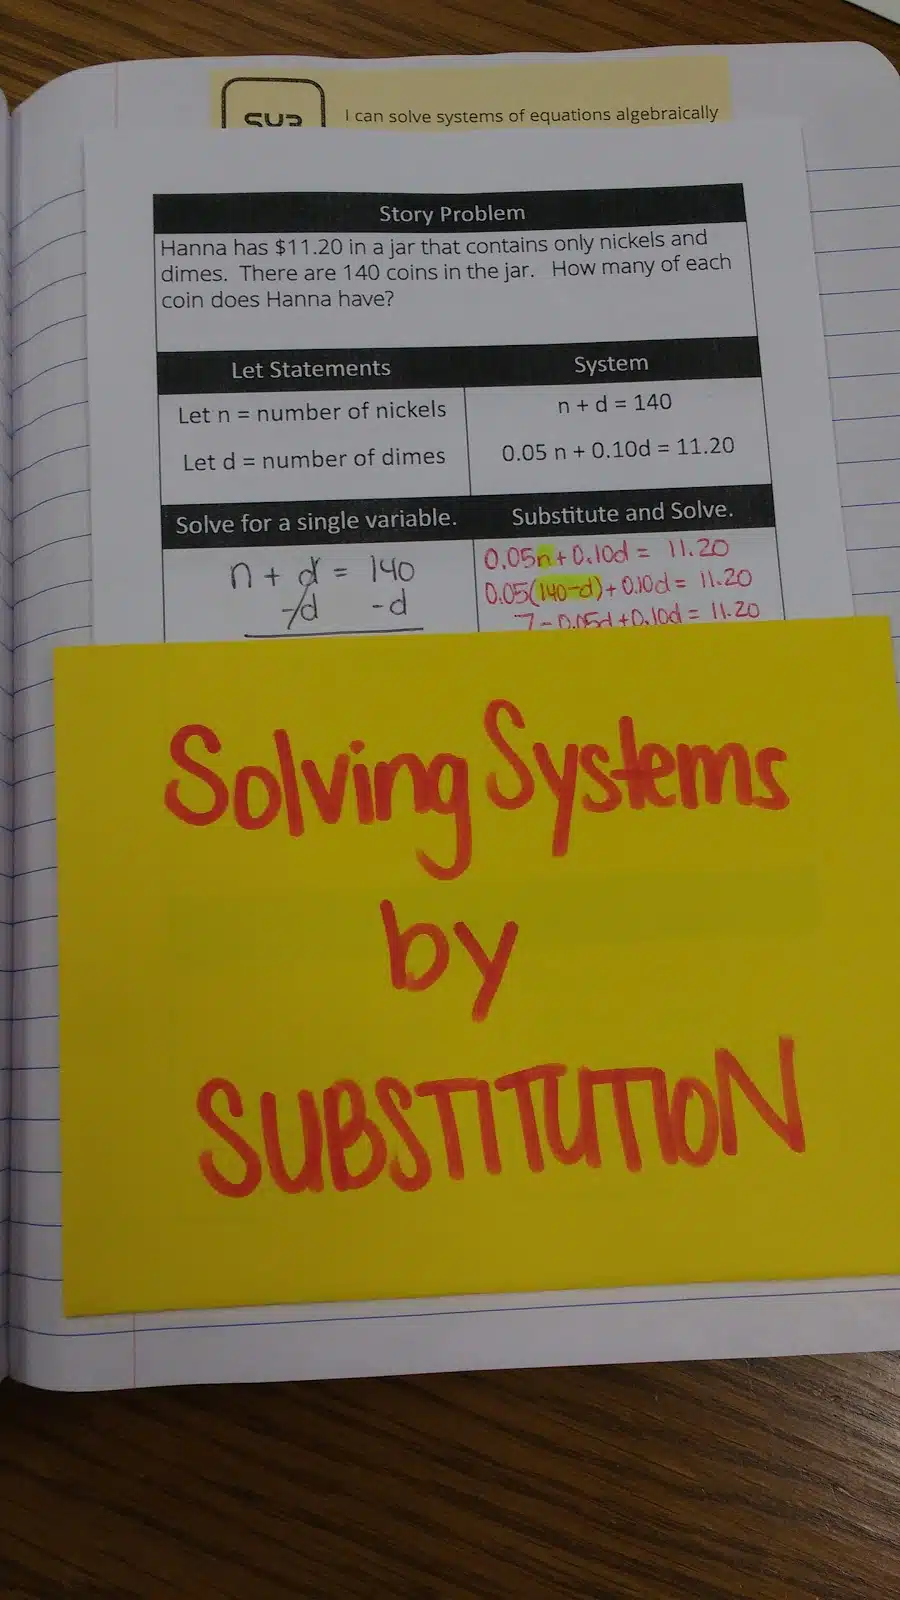 I can solve systems of equations algebraically
Story Problem
Hanna has $11.20 in a jar that contains only nickels and
dimes. There are 140 coins in the jar. How many of each
coin does Hanna have?
Let Statements
System
Let n = number of nickels
Let d = number of dimes
n + d = 140
0.05 n + 0.10d = 11.20
Solve for a single variable.
Substitute and Solve.
n + d = 140
-d -d
0.05n + 0.10d = 11.20
0.05(140-d) + 0.10d = 11.20
7 - 0.05d + 0.10d = 11.20
Solving Systems
by
SUBSTITUTION